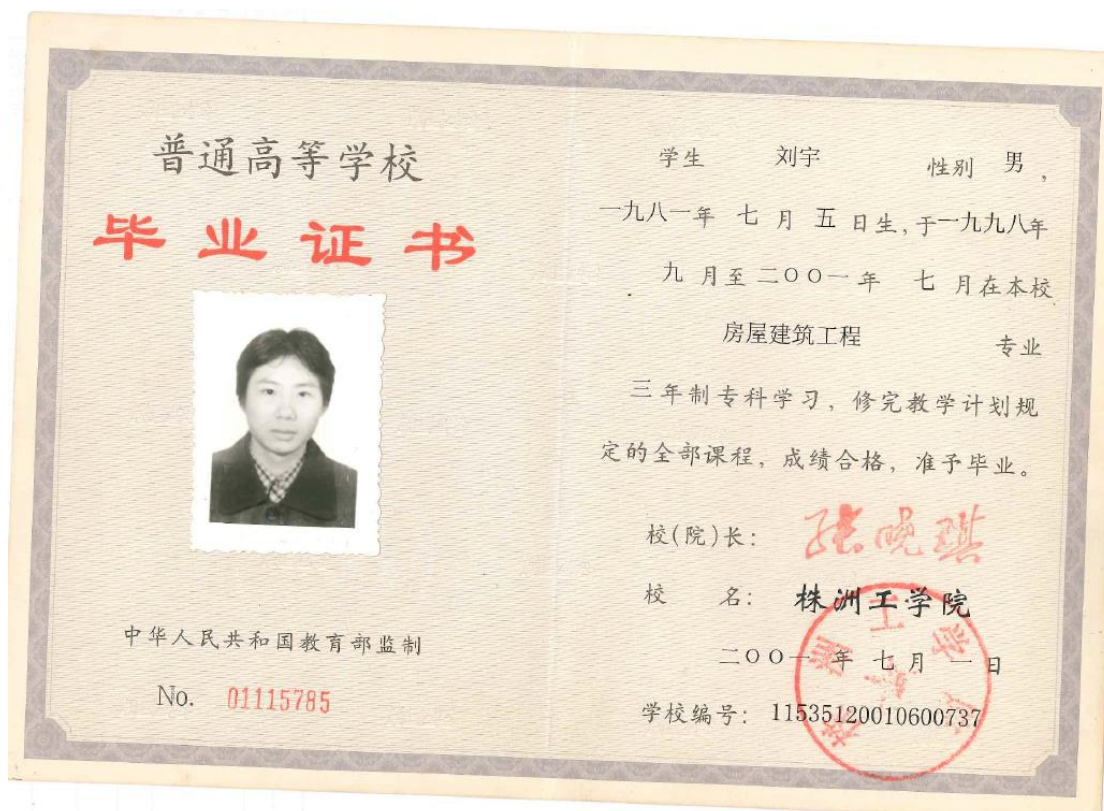 普通高等学校
毕业证书
中华人民共和国教育部监制
No. 01115785
学生 刘宇 性别 男，
一九八一年 七 月 五 日生，于一九九八年
九 月至 二〇〇一 年 七 月在本校
房屋建筑工程 专业
三 年制专科学习，修完教学计划规
定的全部课程，成绩合格，准予毕业。
校(院)长： 张晓琪
校 名： 株洲工学院
二〇〇一 年 七 月 一 日
学校编号： 11535120010600737